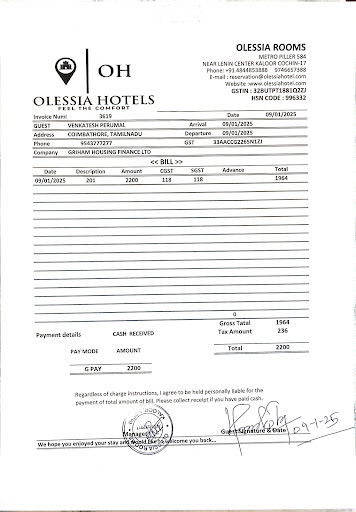 OH
OLESSIA HOTELS
FEEL THE COMFORT
OLESSIA ROOMS
METRO PILLER 584
NEAR LENIN CENTER KALOOR COCHIN-17
Phone: +91 4844853888 9746657388
E-mail : reservation@olessiahotel.com
Website :www.olessiahotel.com
GSTIN : 32BUTPT1881Q2ZJ
HSN CODE : 996332
Invoice Numl 3619 Date 09/01/2025
GUEST VENKATESH PERUMAL Arrival 09/01/2025
Address COIMBATHORE, TAMILNADU Departure 09/01/2025
Phone 9543777277 GST 33AACCG2265N1ZJ
Company GRIHAM HOUSING FINANCE LTD
<< BILL >>
Date Description Amount CGST SGST Advance Total
09/01/2025 201 2200 118 118 1964
0
Gross Tatal 1964
Payment details CASH RECEIVED Tax Amount 236
Total 2200
PAY MODE AMOUNT
G PAY 2200
Regardless of charge instructions, I agree to be held personally liable for the
payment of total amount of bill. Please collect receipt if you have paid cash.
Manager Guest Signature & Date 09-1-25
We hope you enjoyed your stay and would like to welcome you back...